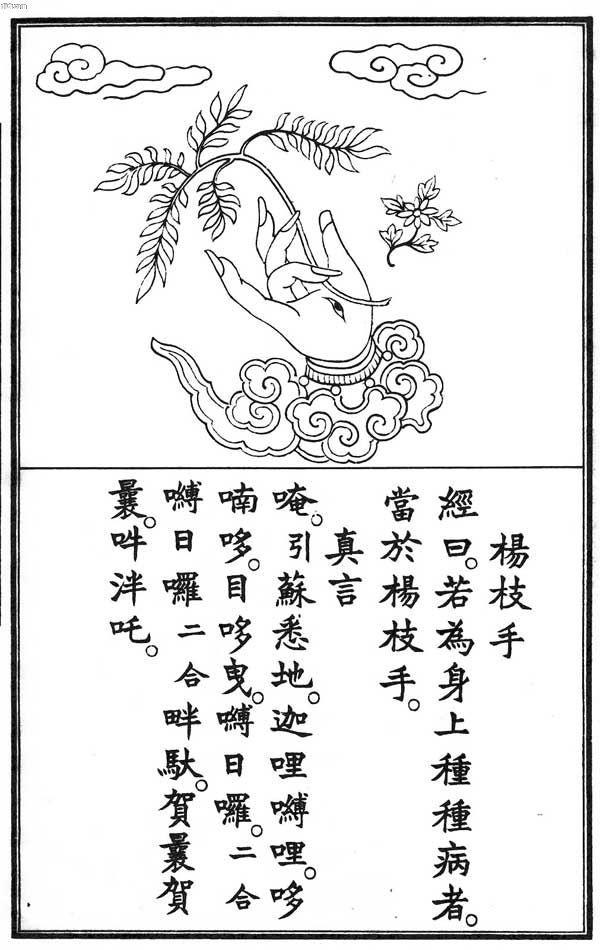 楊枝手
經曰。若為身上種種病者。
當於楊枝手。
真言
唵。引蘇悉地。迦哩嚩哩。哆
喃哆。目哆曳。嚩日囉。二合
嚩日囉二合畔馱。賀曩賀
曩。吽泮吒。